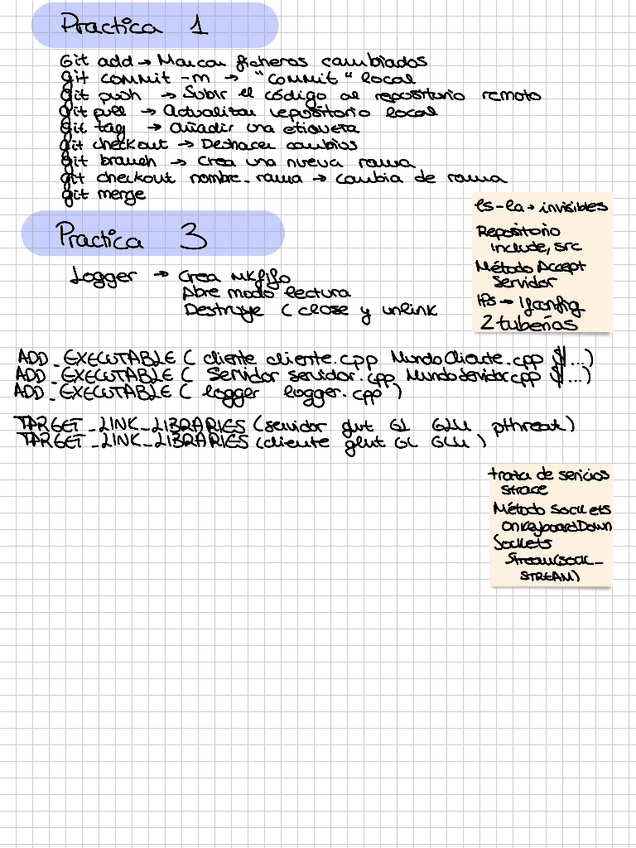 Practica 1
Git add → Marcar ficheros cambiados
git commit -m → "commit" local
git push → Subir el código al repositorio remoto
git pull → Actualizar repositorio local
git tag → añadir una etiqueta
git checkout → Deshacer cambios
git branch → Crea una nueva rama
git checkout nombre_rama → cambia de rama
git merge
ls-la → invisibles
Repositorio
include, src
Método Accept
Servidor
IPs → ifconfig
2 tuberías
Practica 3
Logger → Crea mkfifo
Abre modo lectura
Destruye (close y unlink
ADD_EXECUTABLE ( cliente cliente.cpp MundoCliente.cpp $(...)
ADD_EXECUTABLE ( Servidor servidor.cpp MundoServidor.cpp $(...)
ADD_EXECUTABLE ( logger logger.cpp )
TARGET_LINK_LIBRARIES (servidor glut GL GLU pthread)
TARGET_LINK_LIBRARIES (cliente glut GL GLU )
trata de servicios
strace
Método Sockets
OnKeyboardDown
Sockets
Stream(sock_
STREAM)